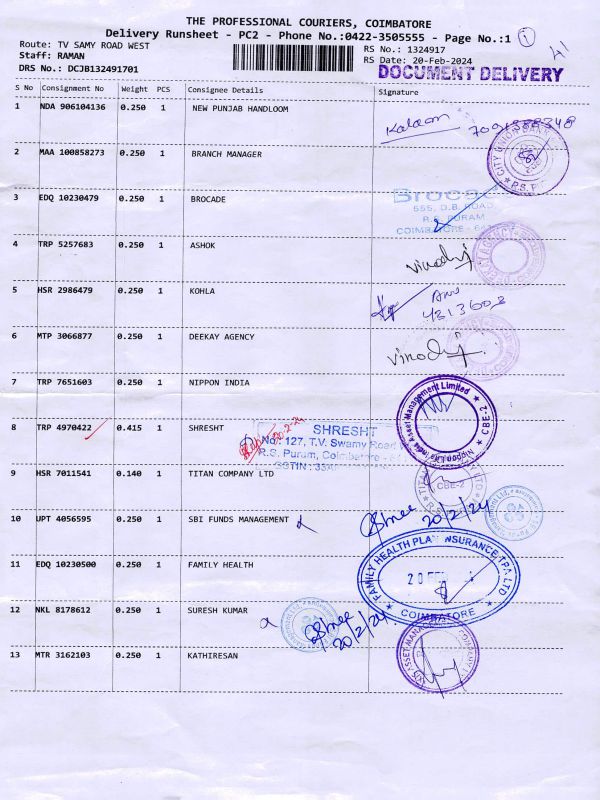 THE PROFESSIONAL COURIERS, COIMBATORE
Delivery Runsheet - PC2 - Phone No.:0422-3505555 - Page No.:1
1
41
Route: TV SAMY ROAD WEST
RS No.: 1324917
Staff: RAMAN
RS Date: 20-Feb-2024
DRS No.: DCJB132491701
DOCUMENT DELIVERY
S No Consignment No Weight PCS Consignee Details Signature
1 NDA 906104136 0.250 1 NEW PUNJAB HANDLOOM
2 MAA 100858273 0.250 1 BRANCH MANAGER
CITY UNION BANK
R.S.P
3 EDQ 10230479 0.250 1 BROCADE
555, D.B. ROAD,
R.S. PURAM
COIMBATORE
4 TRP 5257683 0.250 1 ASHOK
AGENCY
5 HSR 2986479 0.250 1 KOHLA
6 MTP 3066877 0.250 1 DEEKAY AGENCY
7 TRP 7651603 0.250 1 NIPPON INDIA
Nippon India Asset Management Limited
CBE-2
8 TRP 4970422 0.415 1 SHRESHT
20-2-24
SHRESHT
No: 127, T.V. Swamy Road
R.S. Puram, Coimbatore
GSTIN : 33
9 HSR 7011541 0.140 1 TITAN COMPANY LTD
CBE-2
10 UPT 4056595 0.250 1 SBI FUNDS MANAGEMENT
20/2/24
11 EDQ 10230500 0.250 1 FAMILY HEALTH
FAMILY HEALTH PLAN INSURANCE TPA LTD
20 FEB
COIMBATORE
12 NKL 8178612 0.250 1 SURESH KUMAR
20/2/24
13 MTR 3162103 0.250 1 KATHIRESAN